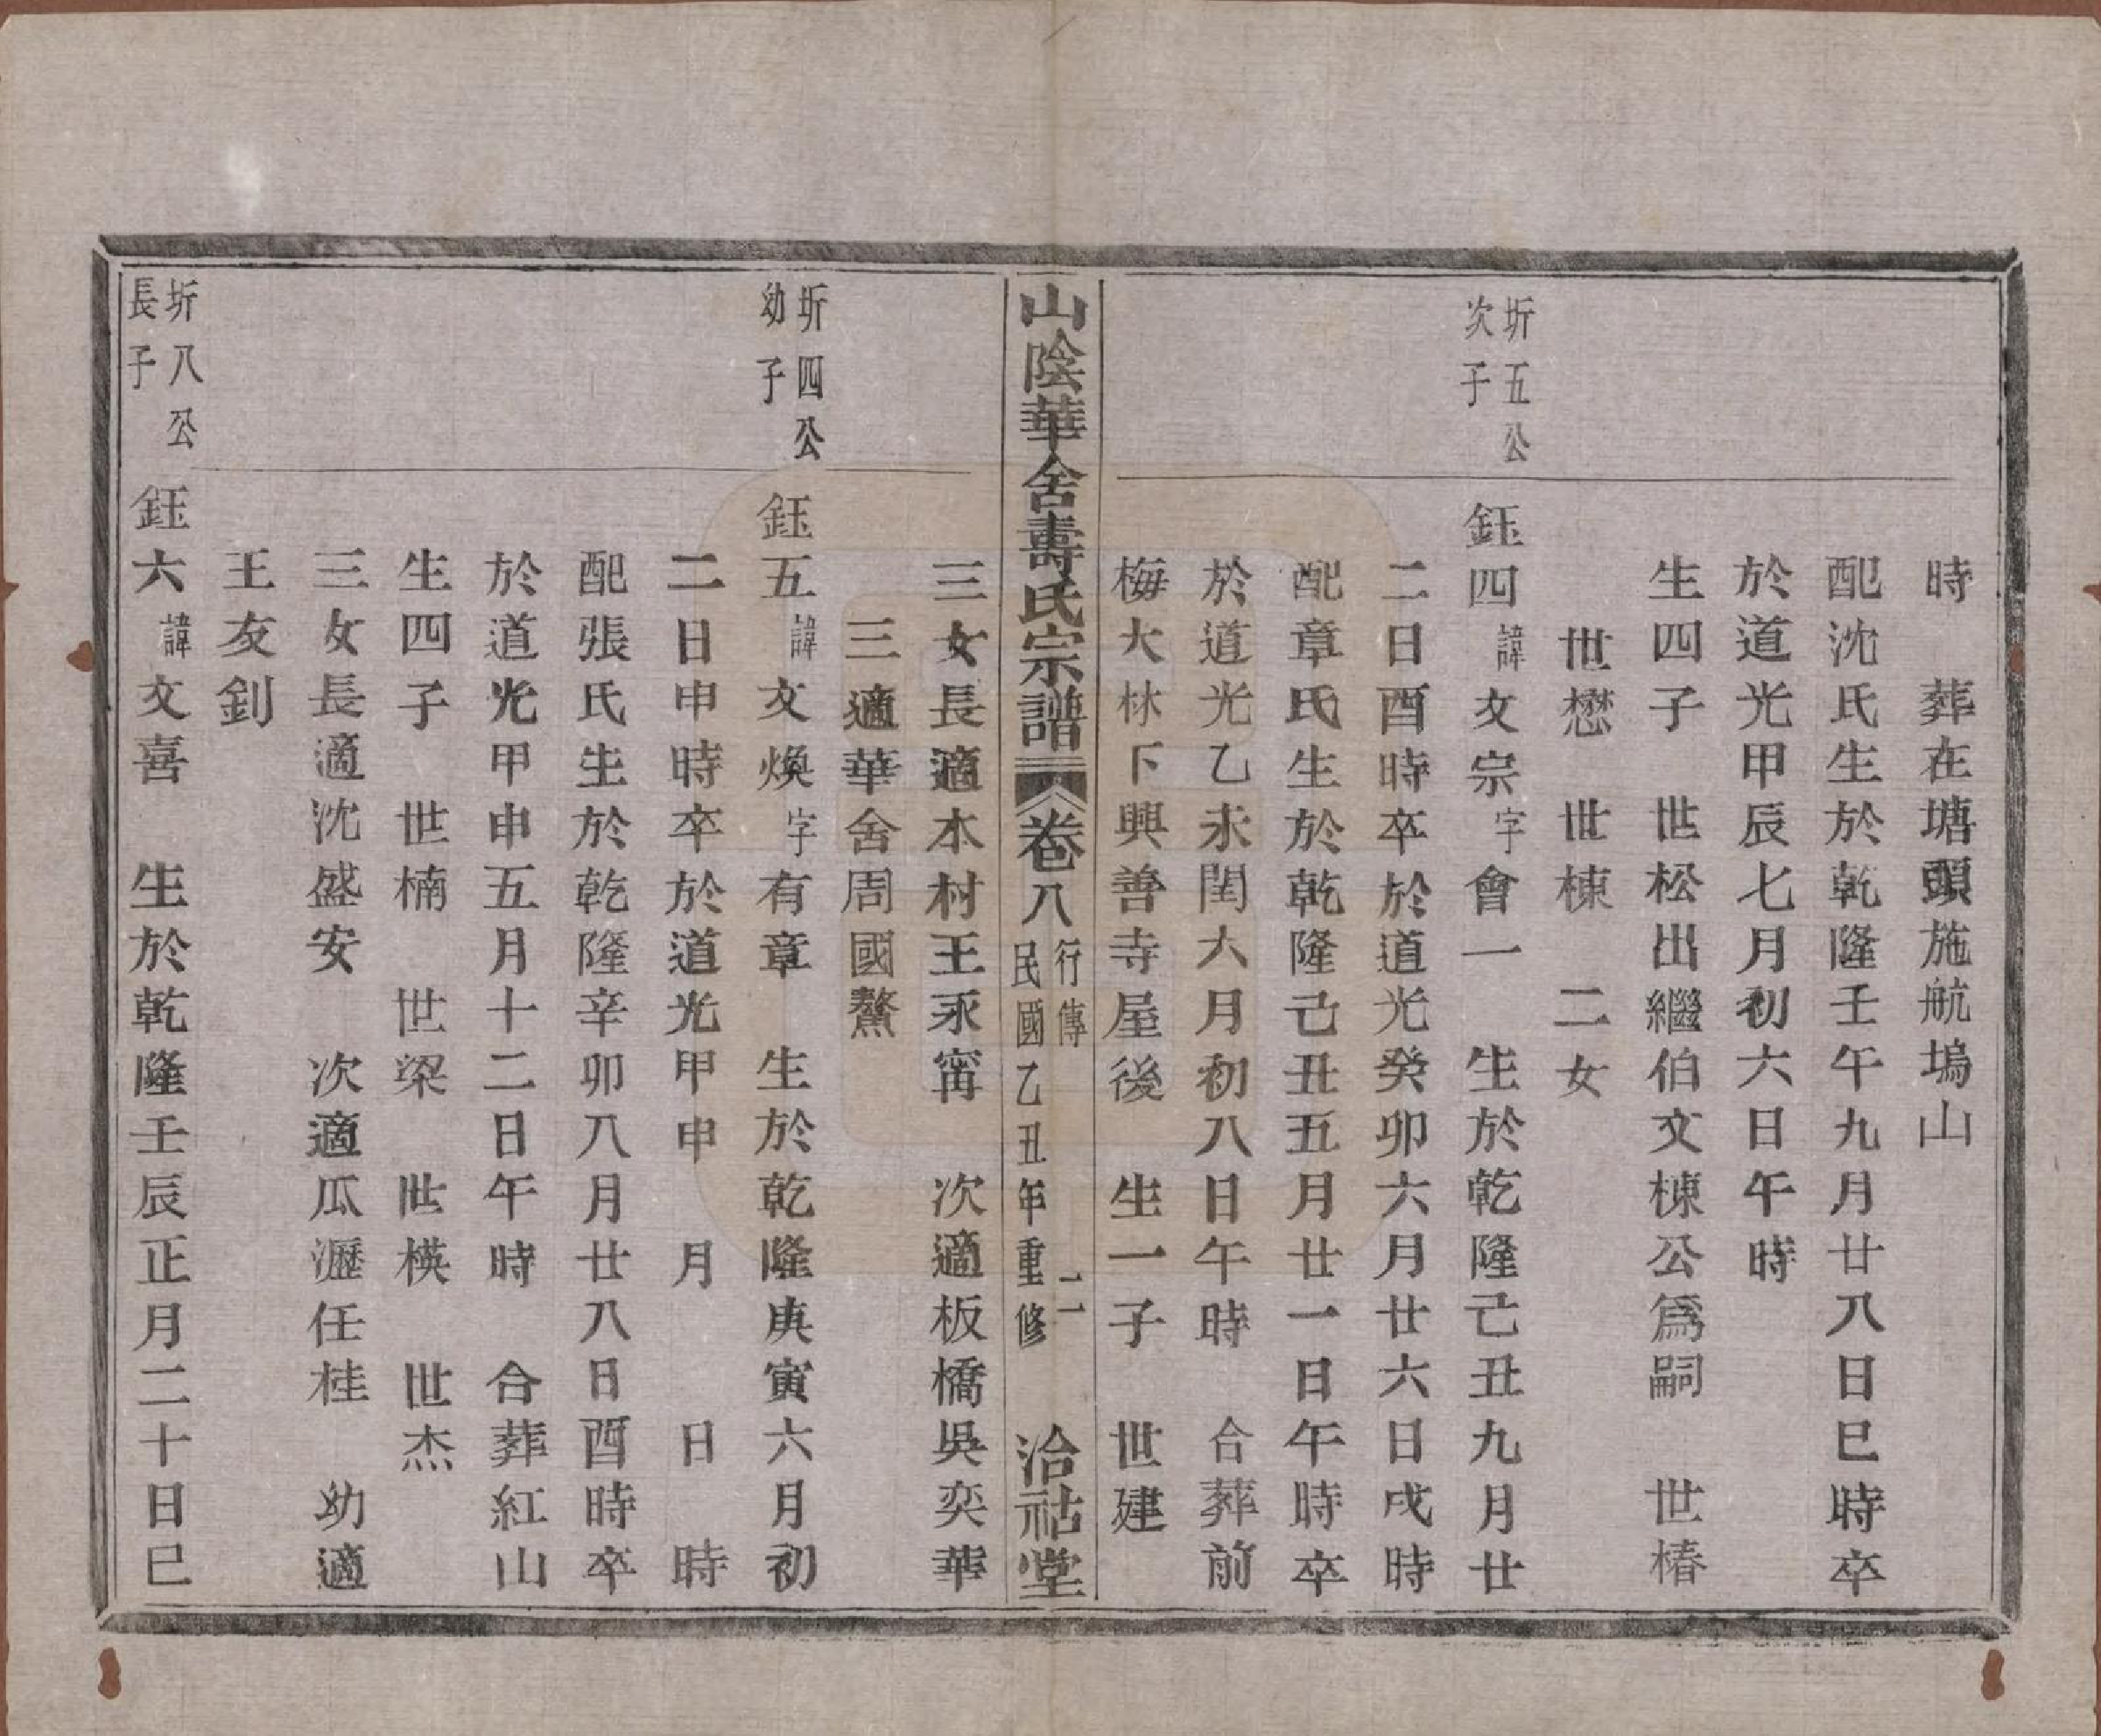 時　葬在塘頭施航塢山
配沈氏生於乾隆壬午九月廿八日巳時卒
於道光甲辰七月初六日午時
生四子　世松出繼伯文棟公爲嗣　世椿
世懋　世棟　二女
圻五公
次子
鈺四諱文宗字會一　生於乾隆己丑九月廿
二日酉時卒於道光癸卯六月廿六日戌時
配章氏生於乾隆己丑五月廿一日午時卒
於道光乙未閏六月初八日午時　合葬前
梅大林下興善寺屋後　生一子　世建
山陰華舍壽氏宗譜　卷八　行傳　二一
民國乙丑年重修　洽祜堂
三女長適本村王永甯　次適板橋吳奕華
三適華舍周國鰲
圻四公
幼子
鈺五諱文煥字有章　生於乾隆庚寅六月初
二日申時卒於道光甲申　月　日　時
配張氏生於乾隆辛卯八月廿八日酉時卒
於道光甲申五月十二日午時　合葬紅山
生四子　世楠　世梁　世橫　世杰
三女長適沈盛安　次適瓜瀝任桂　幼適
王友釗
圻八公
長子
鈺六諱文喜　生於乾隆壬辰正月二十日巳